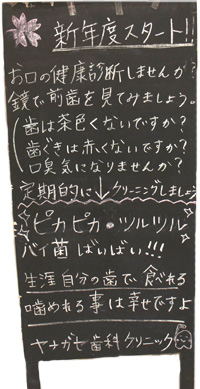 新年度スタート!!
お口の健康診断しませんか?
鏡で前歯を見てみましょう。
歯は茶色くないですか?
歯ぐきは赤くないですか?
口臭気になりませんか?
定期的に↓クリーニングしましょう
ピカピカ・ツルツル
バイ菌ばいばい!!!
生涯自分の歯で食べれる
噛めれる事は幸せですよ
ヤナガセ歯科クリニック